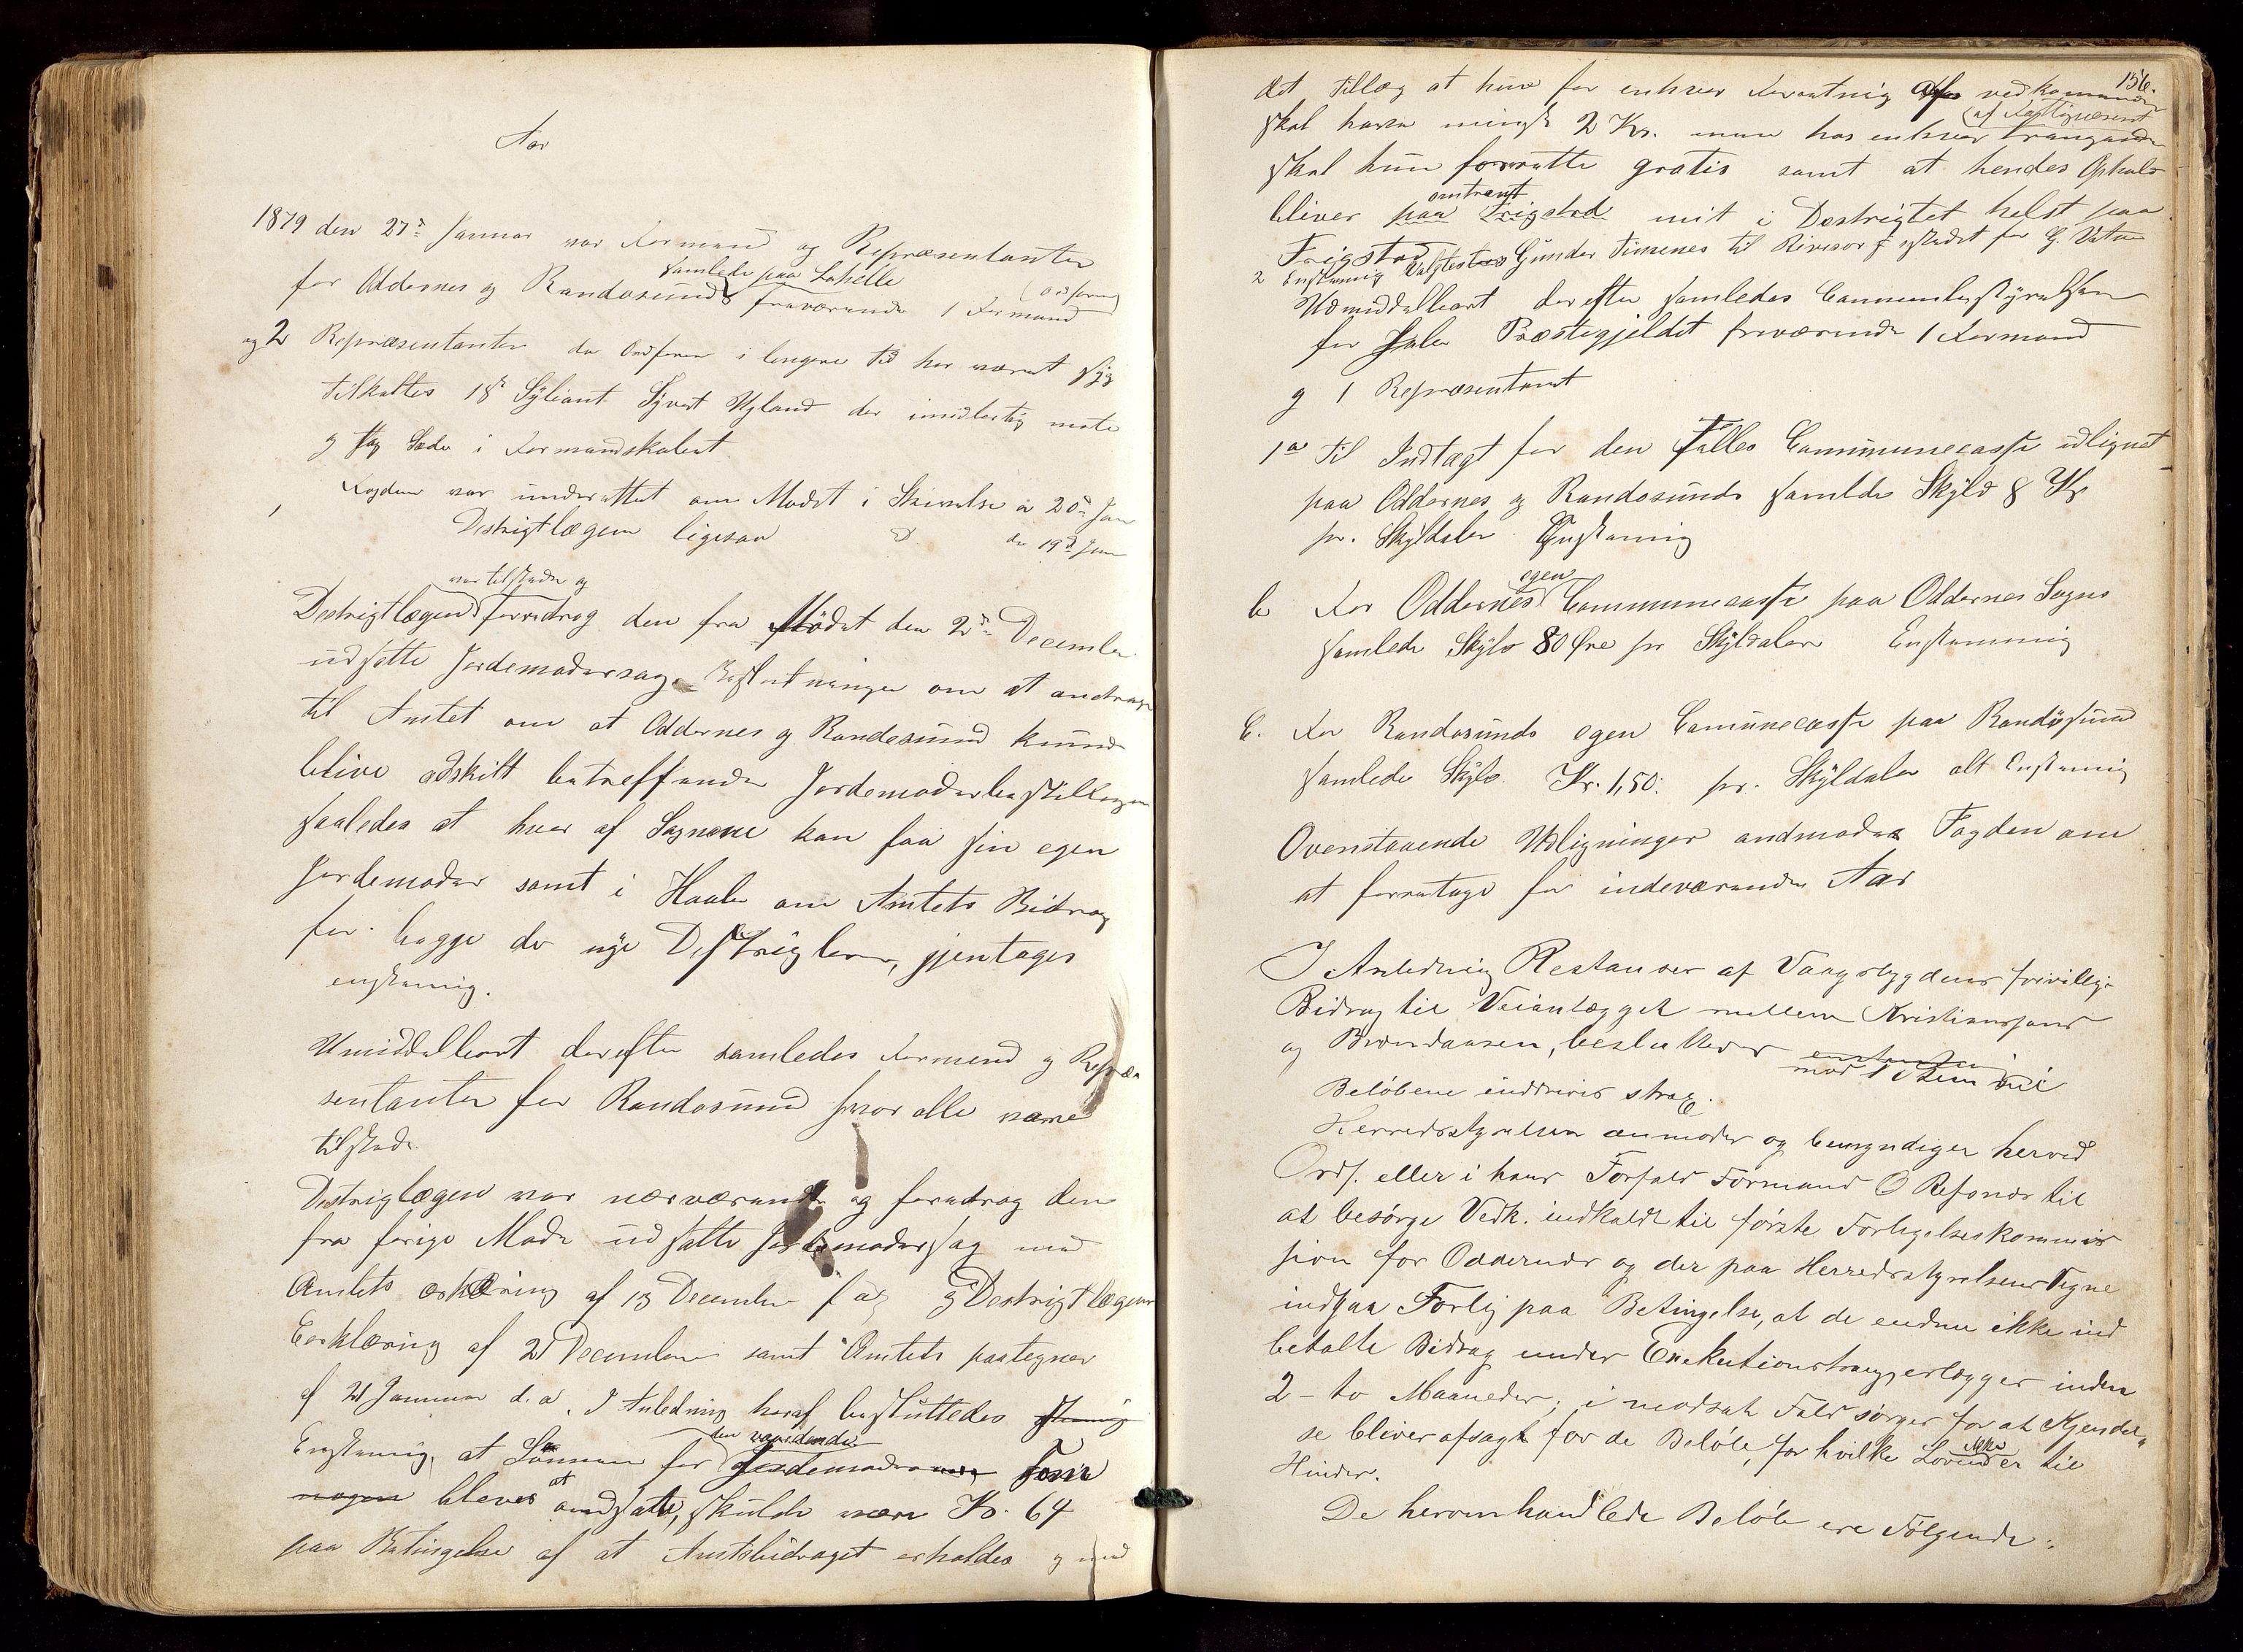 Aar
1879 den 27d Januar var Formænd og Repræsentanter
for Oddernes og Randøsund samlede paa Lahelle fraværende 1 Formand (Ordføren)
og 2 Repræsentanter da Ordføren i lengere tid har været syg
tilkaltes 1st Supliant Syvert Ugland der imidlertig møte
og tog Sæde i Formandskabet.
1 Fogden var underrettet om Mødet i Skrivelse a 20d Jan
Destrigtlægen ligesaa do 19d Jan
Destrigtlægen var tilstede og foredrog den fra Mødet den 2d December
udsatte Jordemodersag. Beslutningen om at andrage
til Amtet om at Oddernes og Randesund kunde
blive adskilt betreffende Jordemoderbestillingen
saaledes at hver af Sognene kan faa sin egen
Jordemoder samt i Haab om Amtets Bidrag
for begge de nye Destrigter, gjentages
enstemig.
Umiddelbart derefter samledes Formend og Repræ
sentanter for Randøsund hvor alle være
tilstede.
Destriglægen var nærværende og foredrog den
fra forige Møde udsatte Jordemodersag med
Amtets erklæring af 13 December f a og Destrigtlægens
Erklæring af 21 December samt Amtets paategner
af 21 Januar d. a. I Anledning heraf besluttedes
Enstemig, at Lønnen for den vordende Jordemoder som
nogen bleves at andsatte, skulde være Kr. 64
paa Betingelse af at Amtsbidraget erholdes og med
156.
det tillæg at hun for enhver Forretning af vedkommende
skal have mingst 2 Kr. men hos enhver trængende (af Fattigvæsenet
skal hun forrætte gratis samt at hendes Ophold
bliver paa omtrent Frigstad mit i Destrigtet helst paa
Frigstad
2 Enstemig valgtes Gunder Timenes til Revisor i stedet for G. Vatne
Umiddelbart derefter samledes Communebestyrelsen
for hele Præstegjeldet fraværende 1 Formand
og 1 Repræsentant
1 a Til Indtægt for den Fælles Communecasse udlignet
paa Oddernes og Randøsunds samlede Skyld 8 Kr
pr. Skylddaler Enstemig
b For Oddernes egen Communecasse paa Oddernes Sogns
samlede Skyld 80 Øre pr Skyldaler Enstemmig
C. For Randøsunds egen Comunecasse paa Randøsund
samlede Skyld. Kr. 1,50. pr. Skyldaler alt Enstemig
Ovenstaaende Udligninger andmodes Fogden om
at foretage for indeværende Aar
I Anledning Restanser af Vaagsbygdens frivillige
Bidrag til Veianlægget mellem Kristianssand
og Brændaasen, beslutteder enstemmig mod 1 Stem. at
Beløbene inddrives strax.
Herredsstyrelsen anmoder og bemyndiger herved
Ordf. eller i hans Forfald Formand O Refsnes til
at besørge Vedk. indkaldt til første Forligelseskommis
sion for Oddernes og der paa Herredsstyrelsens Vegne
indgaa Forlig paa Betingelse, at de endnu ikke ind
betalte Bidrag under Exekutionstvang, erlægges inden
2 - to Maaneder; i modsat Fald sørges for at Kjendel„
se bliver afsagt for de Beløb, for hvilke Loven ikke er til
Hinder.
De herom handlede Beløb ere Følgende: